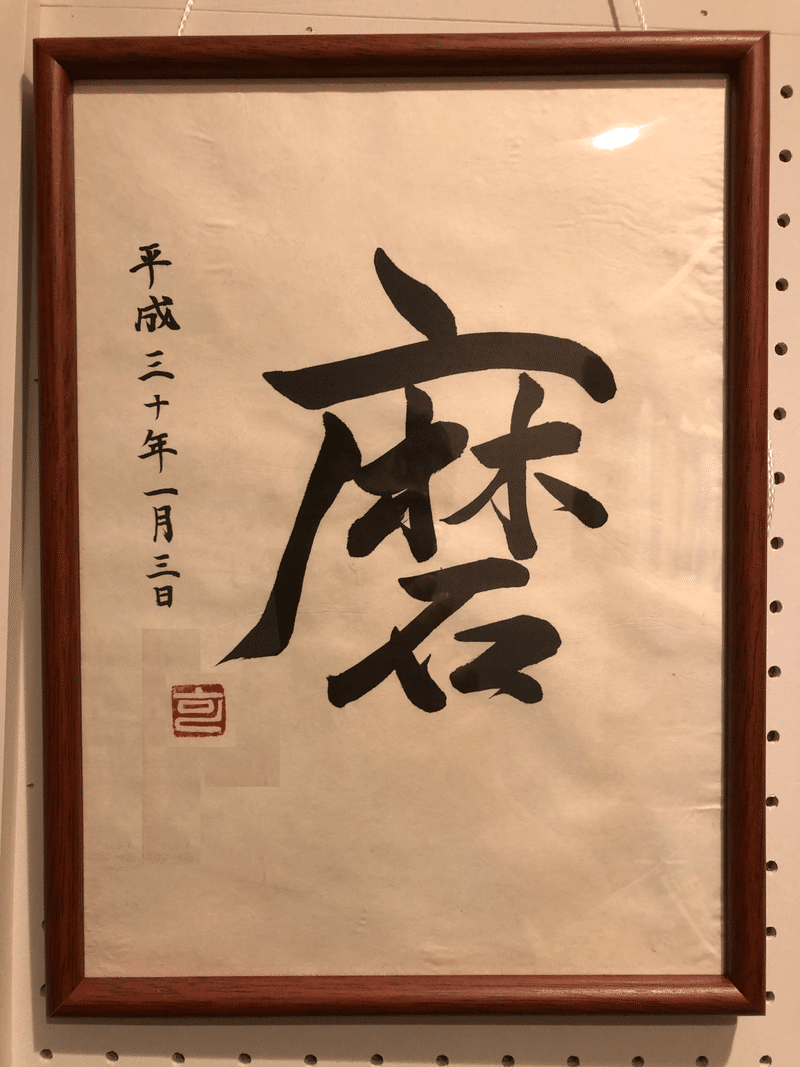 磨
平成三十年一月三日